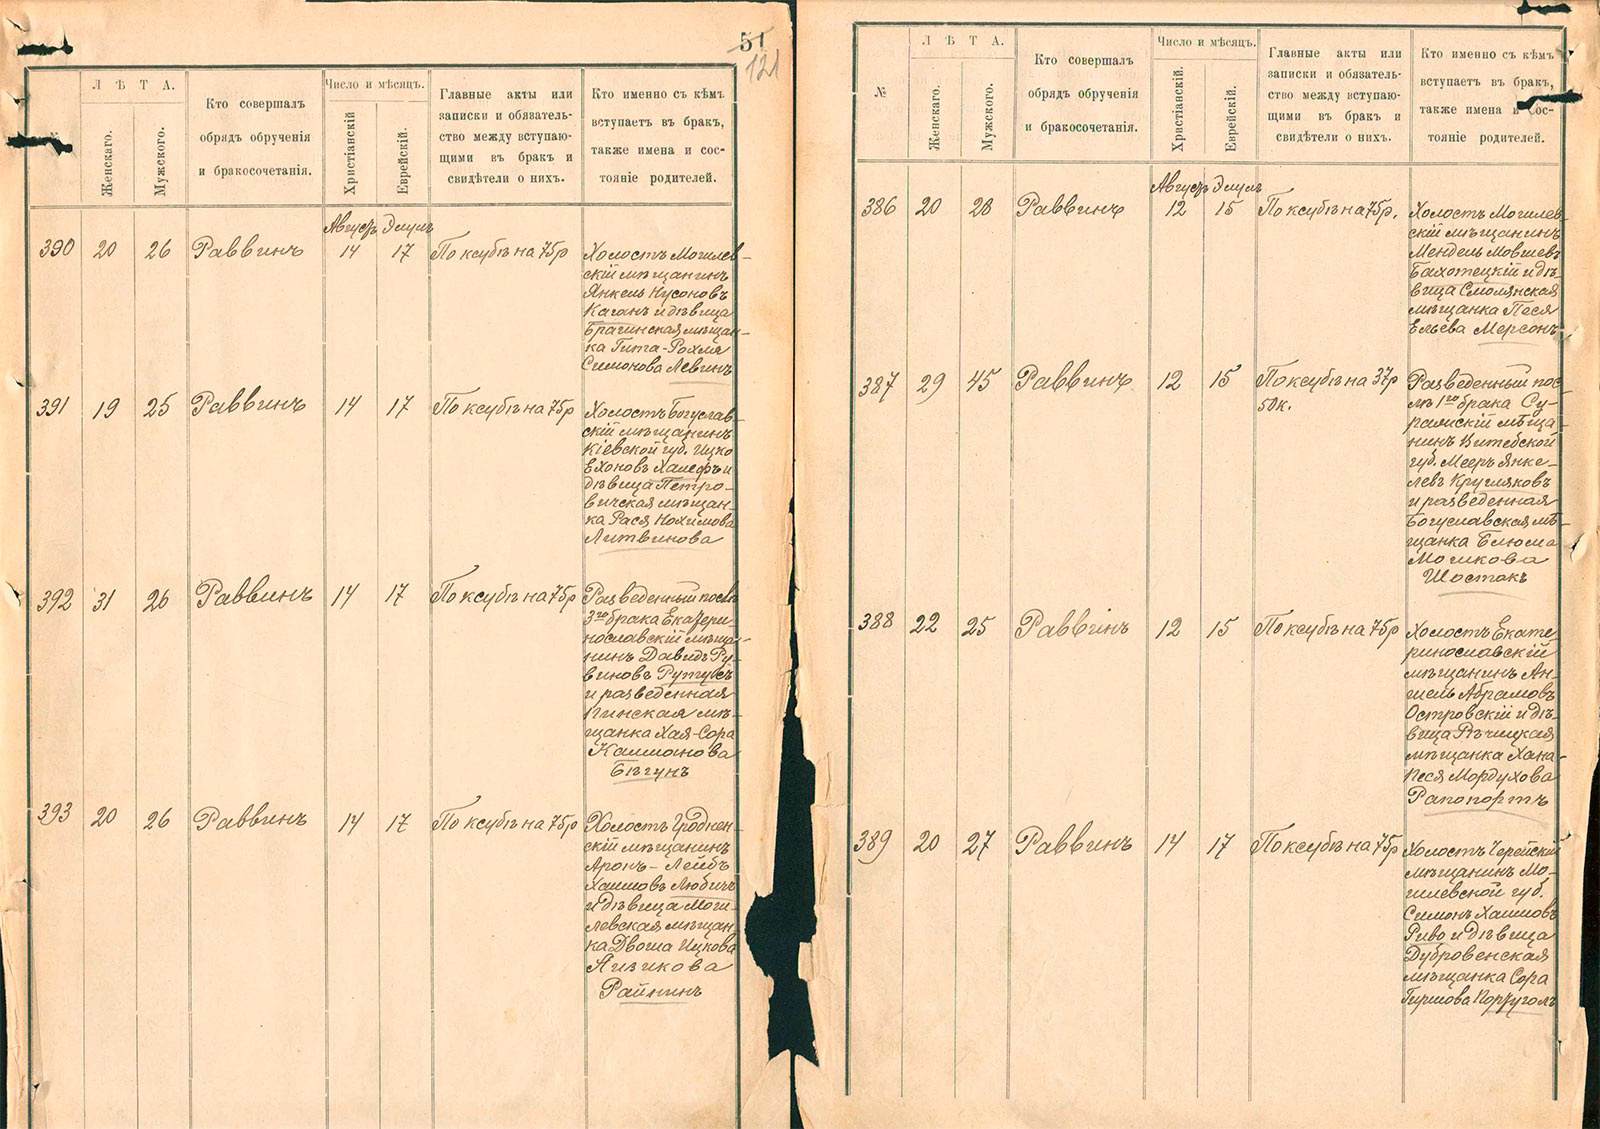 51
121
№
ЛѢТА.
Женскаго.
Мужского.
Кто совершалъ
обрядъ обрученія
и бракосочетанія.
Число и мѣсяцъ.
Христіанскій
Еврейскій.
Главные акты или
записки и обязатель-
ство между вступаю-
щими въ бракъ и
свидѣтели о нихъ.
Кто именно съ кѣмъ
вступаетъ въ бракъ,
также имена и сос-
тояніе родителей.
Августъ Элулъ
390 20 26 Раввинъ 14 17 По ксубѣ на 75 р
Холостъ Могилев-
скій мѣщанинъ
Янкель Нусоновъ
Каганъ и дѣвица
Брагинская мѣщан-
ка Гита-Рохля
Симонова Левинъ
391 19 25 Раввинъ 14 17 По ксубѣ на 75 р
Холостъ Богуслав-
скій мѣщанинъ
Кіевской губ. Ицко
Ехоновъ Халефъ и
дѣвица Петро-
вичская мѣщан-
ка Рася Нохимова
Литвинова
392 31 26 Раввинъ 14 17 По ксубѣ на 75 р
Разведенный послѣ
3го брака Екатери-
нославскій мѣща-
нинъ Давидъ Ру-
виновъ
и разведенная
Пинская мѣ-
щанка Хая-Сора
Калмановa
Бѣгунъ
393 20 26 Раввинъ 14 17 По ксубѣ на 75 р
Холостъ Гроднен-
скій мѣщанинъ
Аронъ-Лейбъ
Хаимовъ Любичъ
и дѣвица Моги-
левская мѣщан-
ка Двоша Ицкова
Айзикова
Райнинъ
№
ЛѢТА.
Женскаго.
Мужского.
Кто совершалъ
обрядъ обрученія
и бракосочетанія.
Число и мѣсяцъ.
Христіанскій.
Еврейскій.
Главные акты или
записки и обязатель-
ство между вступаю-
щими въ бракъ и
свидѣтели о нихъ.
Кто именно съ кѣмъ
вступаетъ въ бракъ,
также имена и сос-
тояніе родителей.
Августъ Элулъ
386 20 28 Раввинъ 12 15 По ксубѣ на 75 р.
Холостъ Могилев-
скій мѣщанинъ
Мендель Мовшевъ
Бахотецкій и дѣ-
вица Смолянская
мѣщанка Песя
Ельева Мерсонъ
387 29 45 Раввинъ 12 15 По ксубѣ на 37 р
50 к.
Разведенный пос-
лѣ 1го брака Су-
ражскій мѣща-
нинъ Витебской
губ. Мееръ Янке-
левъ Кругляковъ
и разведенная
Богуславская мѣ-
щанка Елюма
Мошкова
Шостакъ
388 22 25 Раввінъ 12 15 По ксубѣ на 75 р
Холостъ Екате-
ринославскій
мѣщанинъ Ан-
шель Абрамовъ
Островскій и дѣ-
вица Рѣчицкая
мѣщанка Хана-
Песя Мордухова
Рапопортъ
389 20 27 Раввинъ 14 17 По ксубѣ на 75 р
Холостъ Черейскій
мѣщанинъ Мо-
гилевской губ.
Симонъ Хаимовъ
Риво и дѣвица
Дубровенская
мѣщанка Сора
Гиршова Португолъ